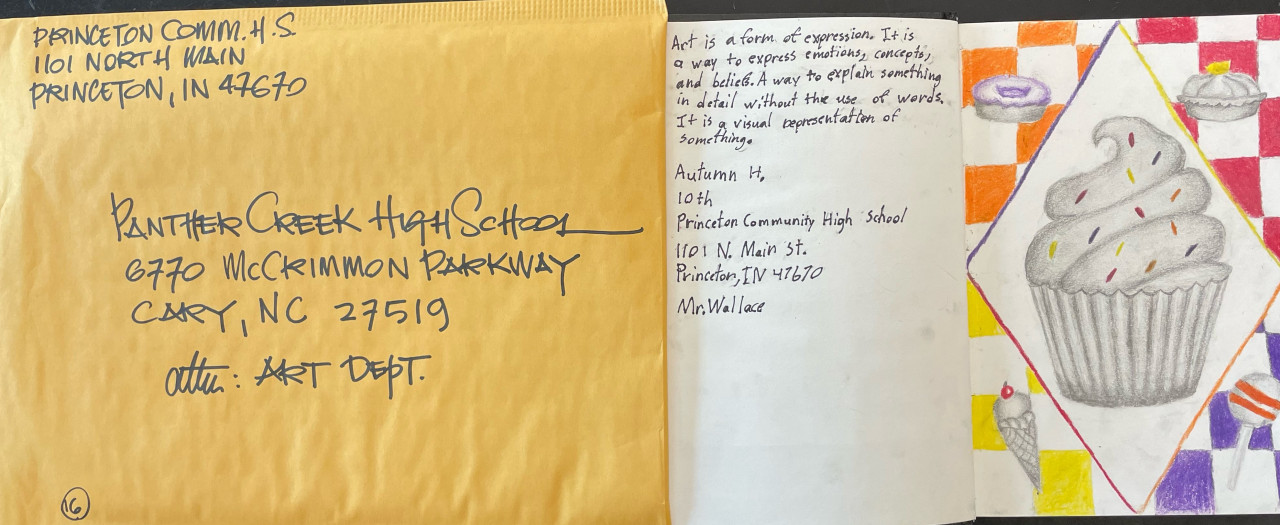 PRINCETON COMM. H.S.
1101 NORTH MAIN
PRINCETON, IN 47670
PANTHER CREEK HIGH SCHOOL
6770 McCRIMMON PARKWAY
CARY, NC 27519
attn: ART DEPT.
16
Art is a form of expression. It is
a way to express emotions, concepts,
and beliefs. A way to explain something
in detail without the use of words.
It is a visual representation of
something.
Autumn H.
10th
Princeton Community High School
1101 N. Main St.
Princeton, IN 47670
Mr. Wallace